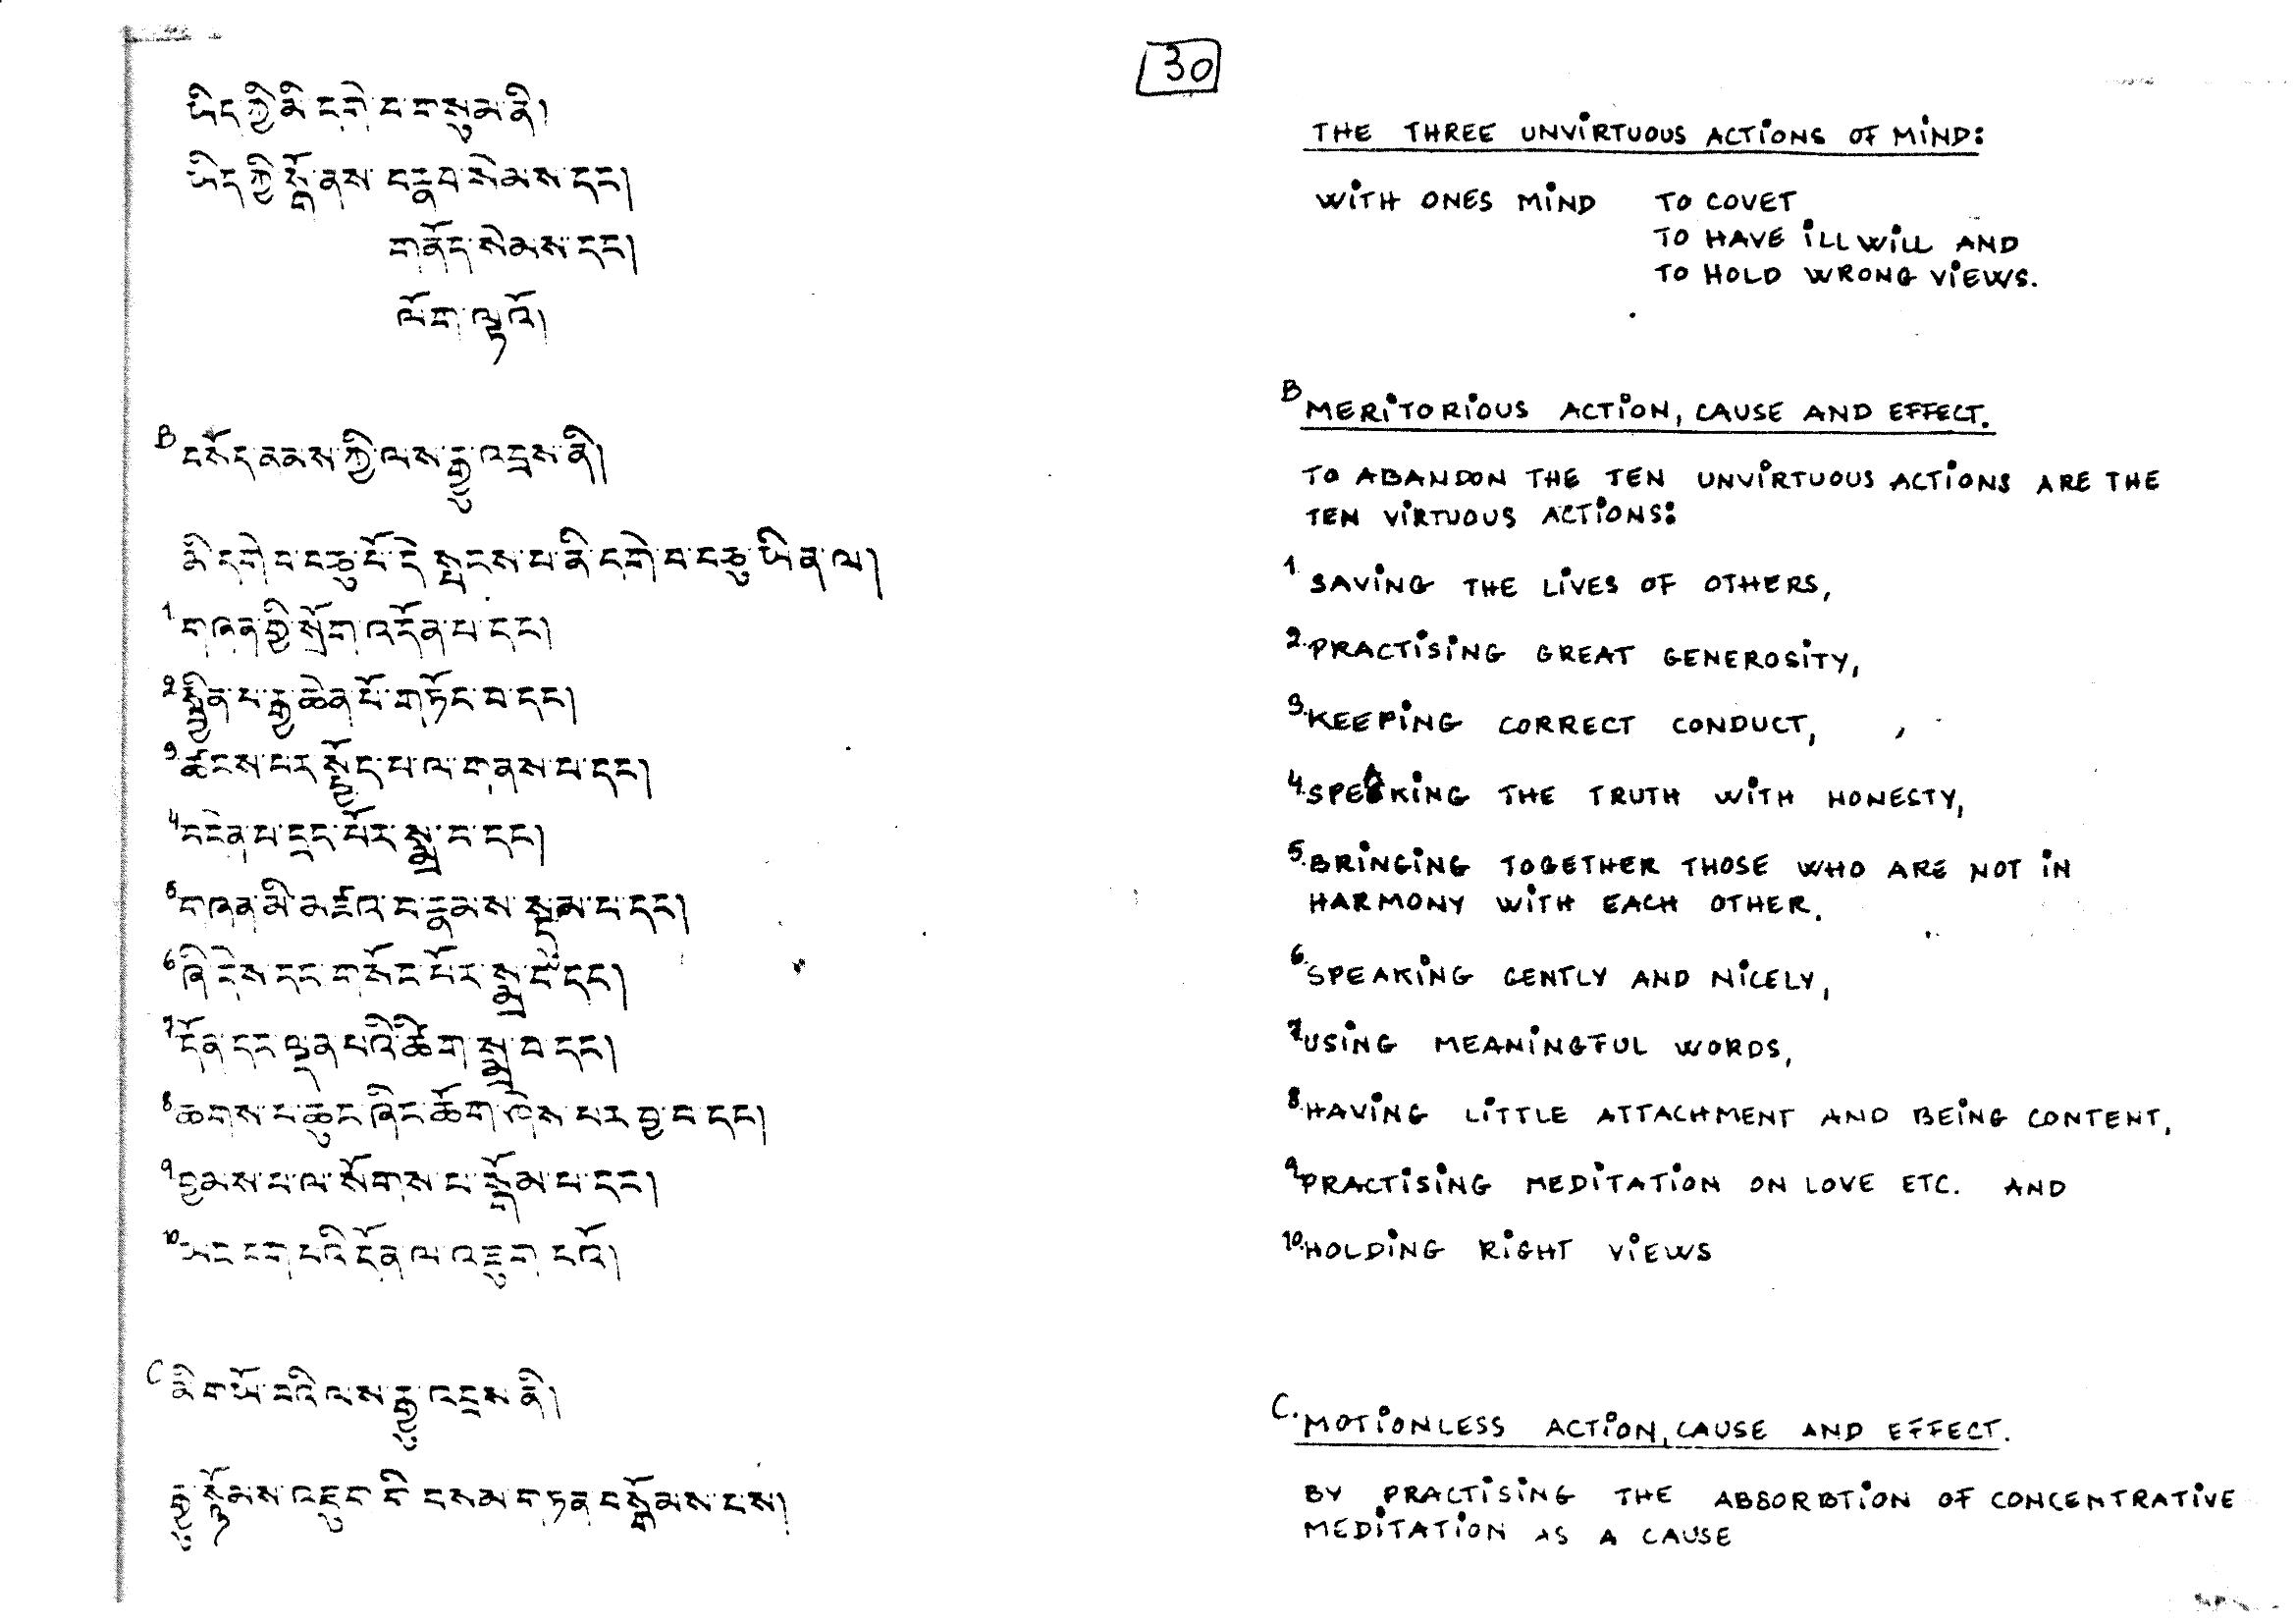 30
ཡིད་ཀྱི་མི་དགེ་བ་གསུམ་ནི།
ཡིད་ཀྱི་སྒོ་ནས་བརྣབ་སེམས་དང།
གནོད་སེམས་དང།
ལོག་ལྟའོ།
B བསོད་ནམས་ཀྱི་ལས་རྒྱུ་འབྲས་ནི།
མི་དགེ་བ་བཅུ་པོ་དེ་སྤངས་པ་ནི་དགེ་བ་བཅུ་ཡིན་ལ།
1 གཞན་གྱི་སྲོག་འདོན་པ་དང།
2 སྦྱིན་པ་རྒྱ་ཆེན་པོ་གཏོང་བ་དང།
3 ཚངས་པར་སྤྱོད་པ་ལ་གནས་པ་དང།
4 བདེན་པ་དྲང་པོར་སྨྲ་བ་དང།
5 གཞན་མི་མཛའ་བ་རྣམས་སྡུམ་པ་དང།
6 ཞི་དེས་དང་གསོང་པོར་སྨྲ་བ་དང།
7 དོན་དང་ལྡན་པའི་ཚིག་སྨྲ་བ་དང།
8 ཆགས་པ་ཆུང་ཞིང་ཆོག་ཤེས་པར་བྱ་བ་དང།
9 བྱམས་པ་ལ་སོགས་པ་སྒོམ་པ་དང།
10 ཡང་དག་པའི་དོན་ལ་འཇུག་པའོ།
C མི་གཡོ་བའི་ལས་རྒྱུ་འབྲས་ནི།
རྒྱུ་སྙོམས་འཇུག་གི་བསམ་གཏན་བསྒོམས་པས།
THE THREE UNVIRTUOUS ACTIONS OF MIND:
WITH ONES MIND TO COVET
TO HAVE ILL WILL AND
TO HOLD WRONG VIEWS.
B MERITORIOUS ACTION, CAUSE AND EFFECT.
TO ABANDON THE TEN UNVIRTUOUS ACTIONS ARE THE
TEN VIRTUOUS ACTIONS:
1. SAVING THE LIVES OF OTHERS,
2. PRACTISING GREAT GENEROSITY,
3. KEEPING CORRECT CONDUCT,
4. SPEAKING THE TRUTH WITH HONESTY,
5. BRINGING TOGETHER THOSE WHO ARE NOT IN
HARMONY WITH EACH OTHER.
6. SPEAKING GENTLY AND NICELY,
7. USING MEANINGFUL WORDS,
8. HAVING LITTLE ATTACHMENT AND BEING CONTENT,
9. PRACTISING MEDITATION ON LOVE ETC. AND
10. HOLDING RIGHT VIEWS
C. MOTIONLESS ACTION, CAUSE AND EFFECT.
BY PRACTISING THE ABSORBTION OF CONCENTRATIVE
MEDITATION AS A CAUSE